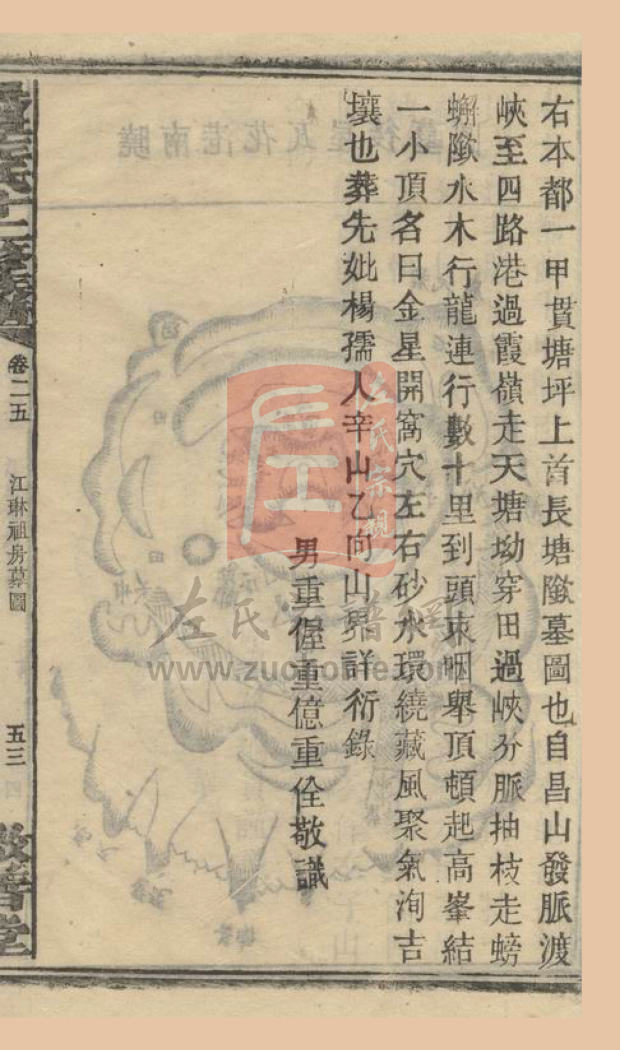 右本都一甲貫塘坪上首長塘隞墓圖也自昌山發脈渡
峽至四路港過霞嶺走天塘坳穿田過峽分脈抽枝走螃
蠏隞水木行龍連行數十里到頭束咽舉頂頓起高峯結
一小頂名曰金星開窩穴左右砂水環繞藏風聚氣洵吉
壤也葬先妣楊孺人辛山乙向山界詳衍錄
男重偓重億重佺敬識
卷二五
江琳祖房墓圖
五三
敬善堂
左氏宗親
www.zuo